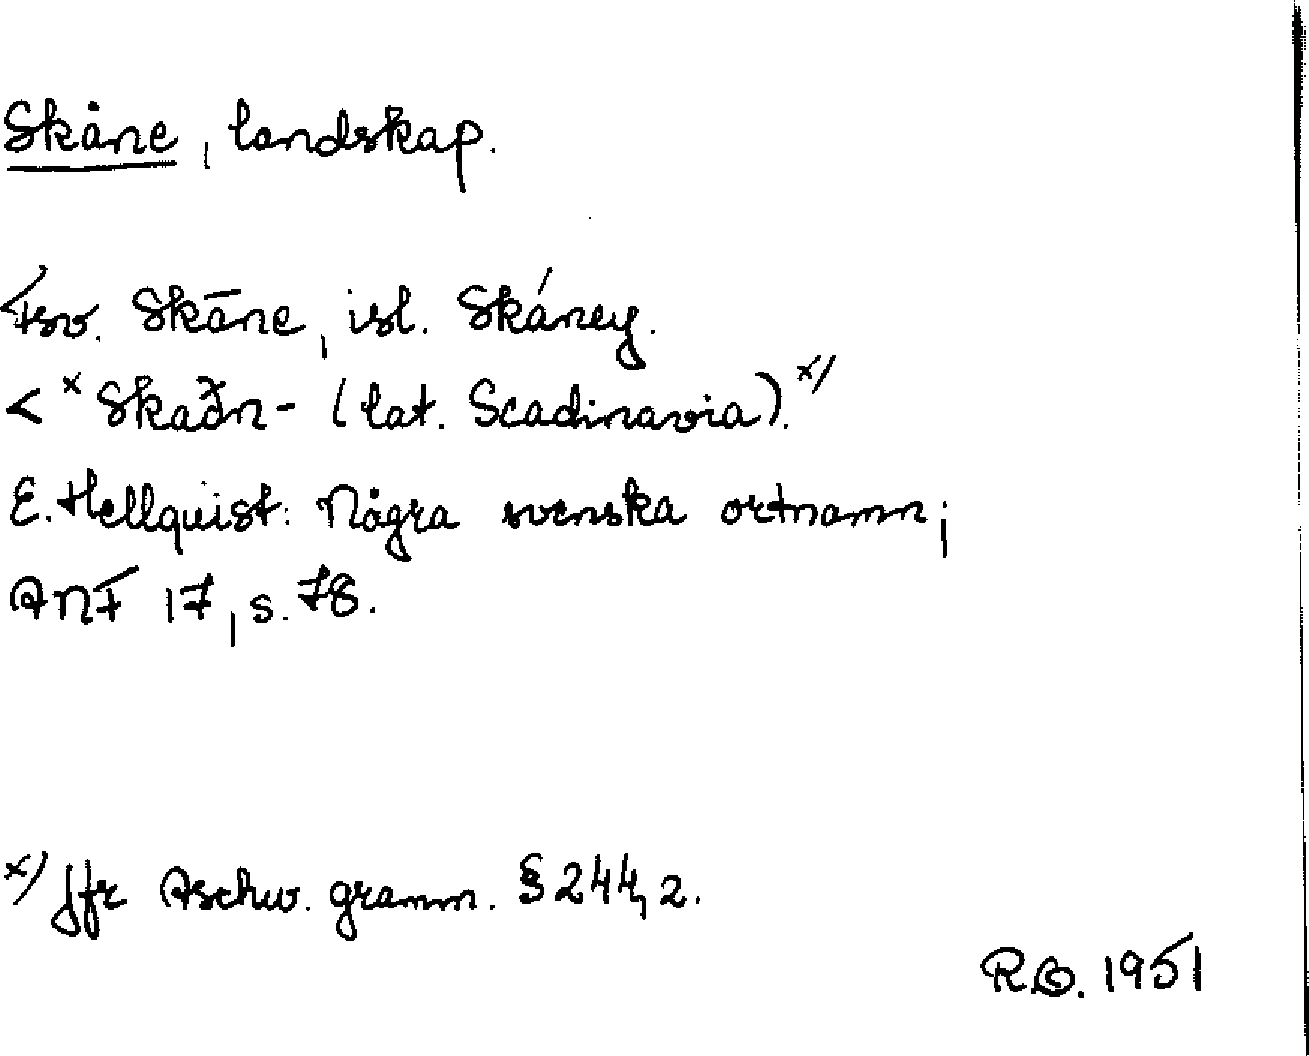 Skåne, landskap.
Fsv. Skāne, isl. Skáney.
< ˣSkaðn- (lat. Scadinavia).ˣ⁾
E. Hellquist: Några svenska ortnamn;
ANF 17, s. 78.
ˣ⁾ Jfr Aschw. gramm. § 244, 2.
1951